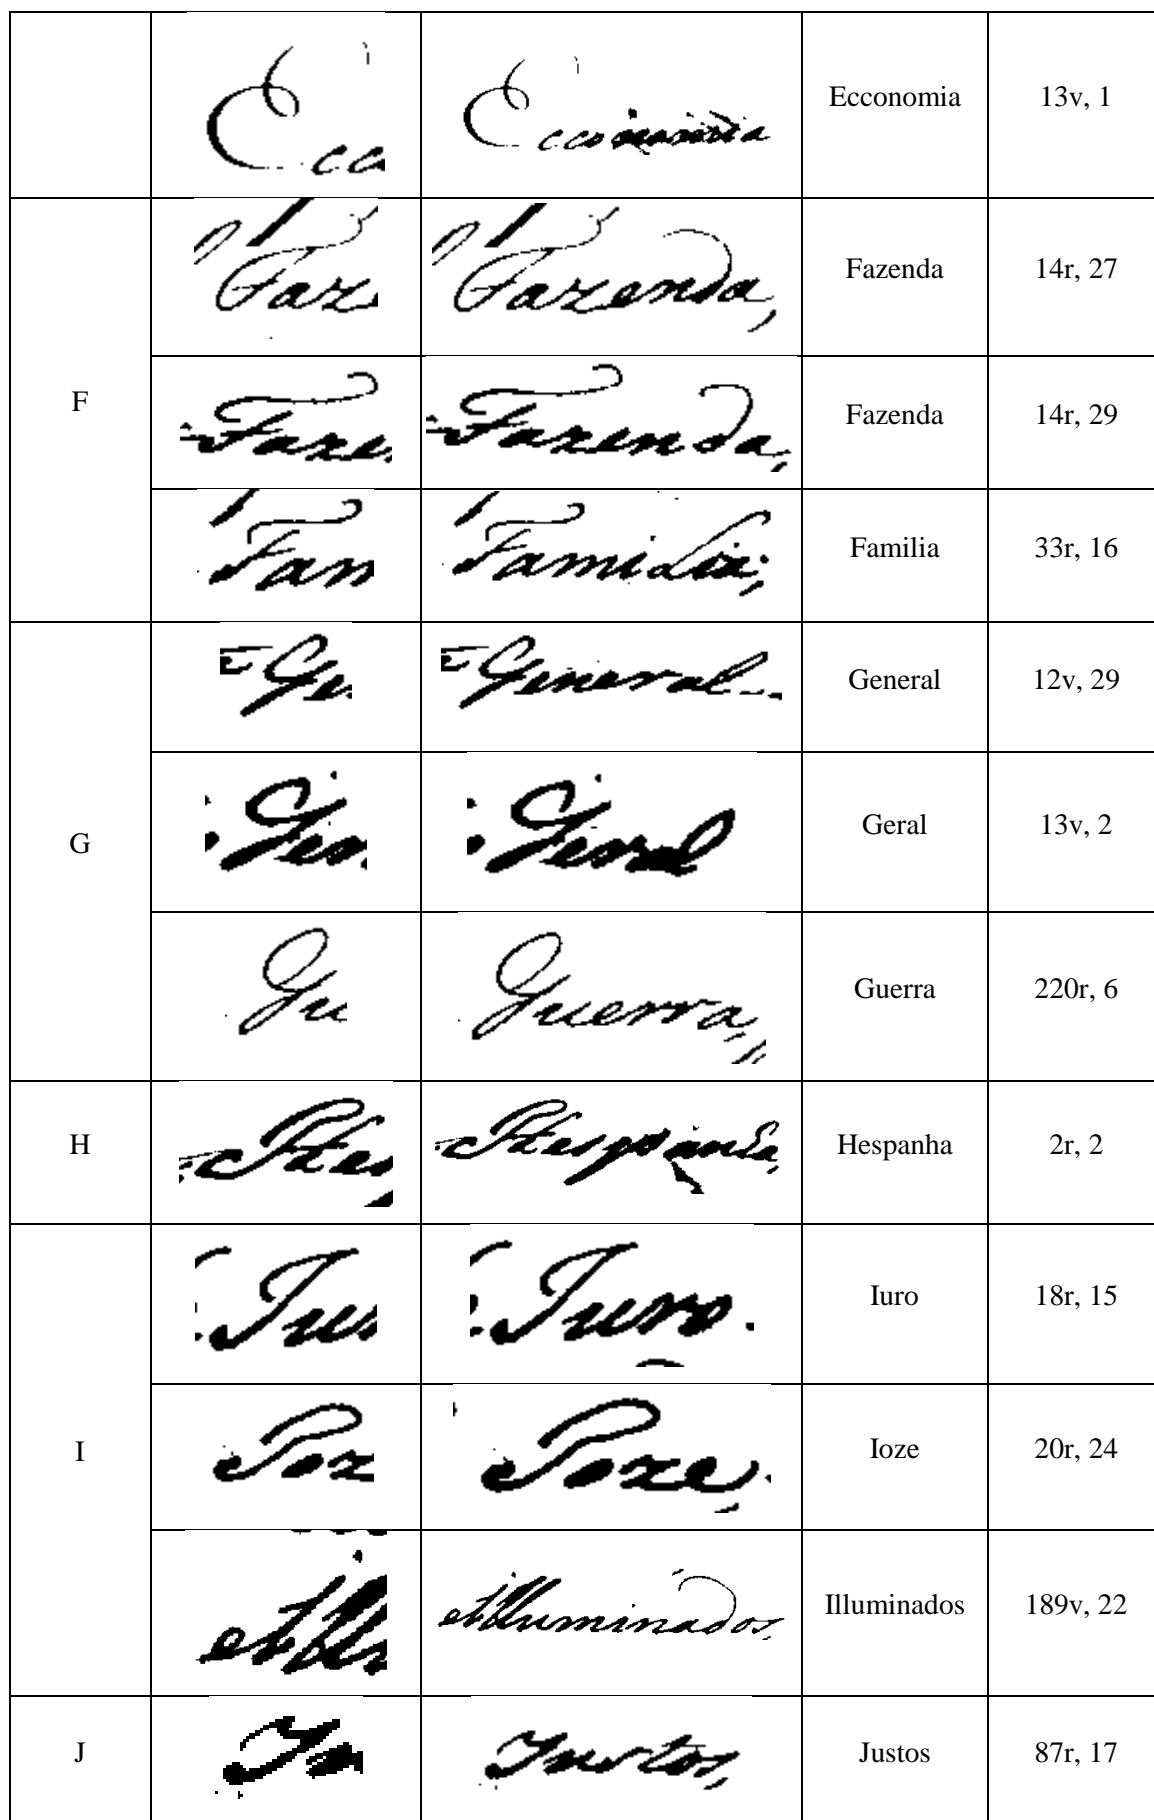 Ecc Ecconomia Ecconomia 13v, 1
F
Faze Fazenda, Fazenda 14r, 27
Faze Fazenda, Fazenda 14r, 29
Fam Familia; Familia 33r, 16
G
Ge General General 12v, 29
Ger Geral Geral 13v, 2
Gu Guerra, Guerra 220r, 6
H Hes Hespanha, Hespanha 2r, 2
I
Iur Iuro. Iuro 18r, 15
Ioz Ioze, Ioze 20r, 24
Illu Illuminados, Illuminados 189v, 22
J Ju Justos, Justos 87r, 17